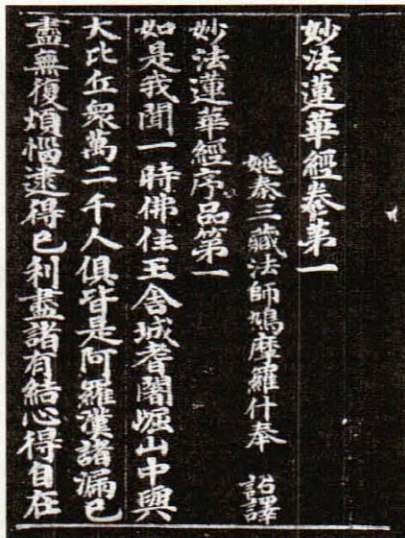 妙法蓮華經卷第一
姚秦三藏法師鳩摩羅什奉 詔譯
妙法蓮華經序品第一
如是我聞一時佛住王舍城耆闍崛山中與
大比丘衆萬二千人俱皆是阿羅漢諸漏已
盡無復煩惱逮得己利盡諸有結心得自在